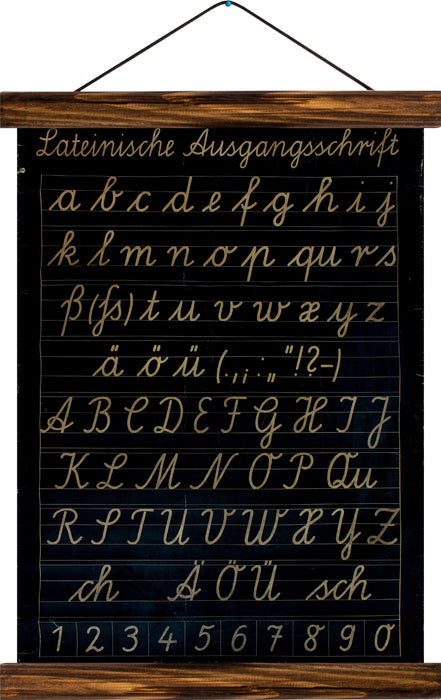 Lateinische Ausgangsschrift
a b c d e f g h i j
k l m n o p qu r s
ß (ſs) t u v w x y z
ä ö ü (.,;:„"!?-)
A B C D E F G H I J
K L M N O P Qu
R S T U V W X Y Z
ch Ä Ö Ü sch
1 2 3 4 5 6 7 8 9 0